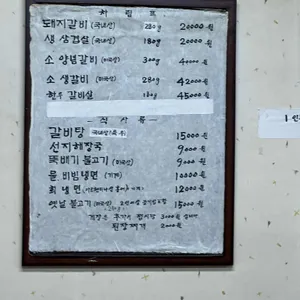 차림표
돼지갈비 (국내산) 250g 20000원
생 삼겹살 (국내산) 180g 20000원
소 양념갈비 (미국산) 300g 40000원
소 생갈비 (미국산) 280g 42000원
한우 갈비살 45000원
식사류
갈비탕 15000원
선지해장국 9000원
뚝배기 불고기 (미국산) 9000원
물 비빔냉면 10000원
회 냉면 12000원
옛날 불고기 (미국산) 15000원
3000원
된장찌개 2000원